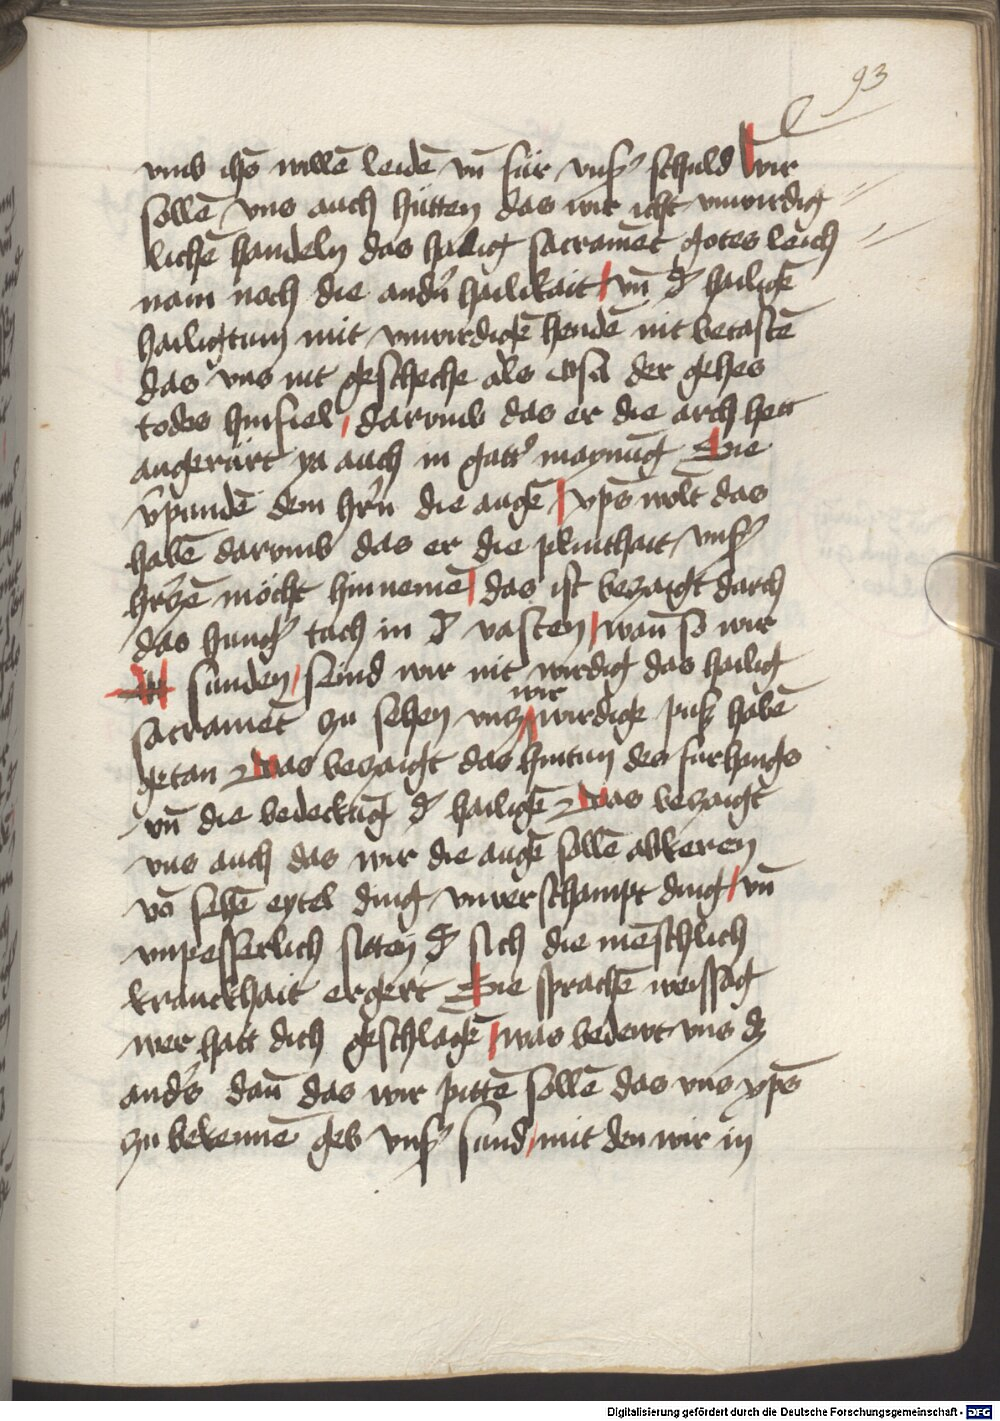 93
vmb ihō willē leidē vn̄ für vnsʼ schuld wir
sollē vns auch hütten das wir icht vnwirdig
lichē handeln das hailig sacramēt gotes leich
nam noch die andʼn hailikait / vn̄ dʼ hailigē
hailigtum mit vnwirdigē hendē nit betastē
das vns nit geschehe als der gehes
todes hinfiel / darvmb das er die arch hett
angerürt ya auch in guttʼ maynūg Sie
vʼpundē dem hrʼn die augē / xp̄s wolt das
habē darvmb das er die plinthait vnsʼ
hrʼczē möcht hinnemē / das ist bezaigt durch
das hungʼ tuch in dʼ vasten / wan̄ so wir
sunden / seind wir nit wirdig das hailig
sacramēt zu sehen vncz wir wirdige puß habē
getan Das bezaigt das hintun des fürhangs
vn̄ die bedeckūg dʼ hailigē Das bezaigt
vns auch das wir die augē sollē abkeren
vō sehē eytel ding vnverschampt ding / vn̄
vnpesserlich siten dʼ sich die menschlich
kranckhait ergert Sie sprachē weissag
wer hatt dich geschlagē / was bedewt vns dz
andʼs dan̄ das wir pittē sollē das vns xp̄s
zu bekennē geb vnsʼ sund / mit den wir in
Digitalisierung gefördert durch die Deutsche Forschungsgemeinschaft - DFG